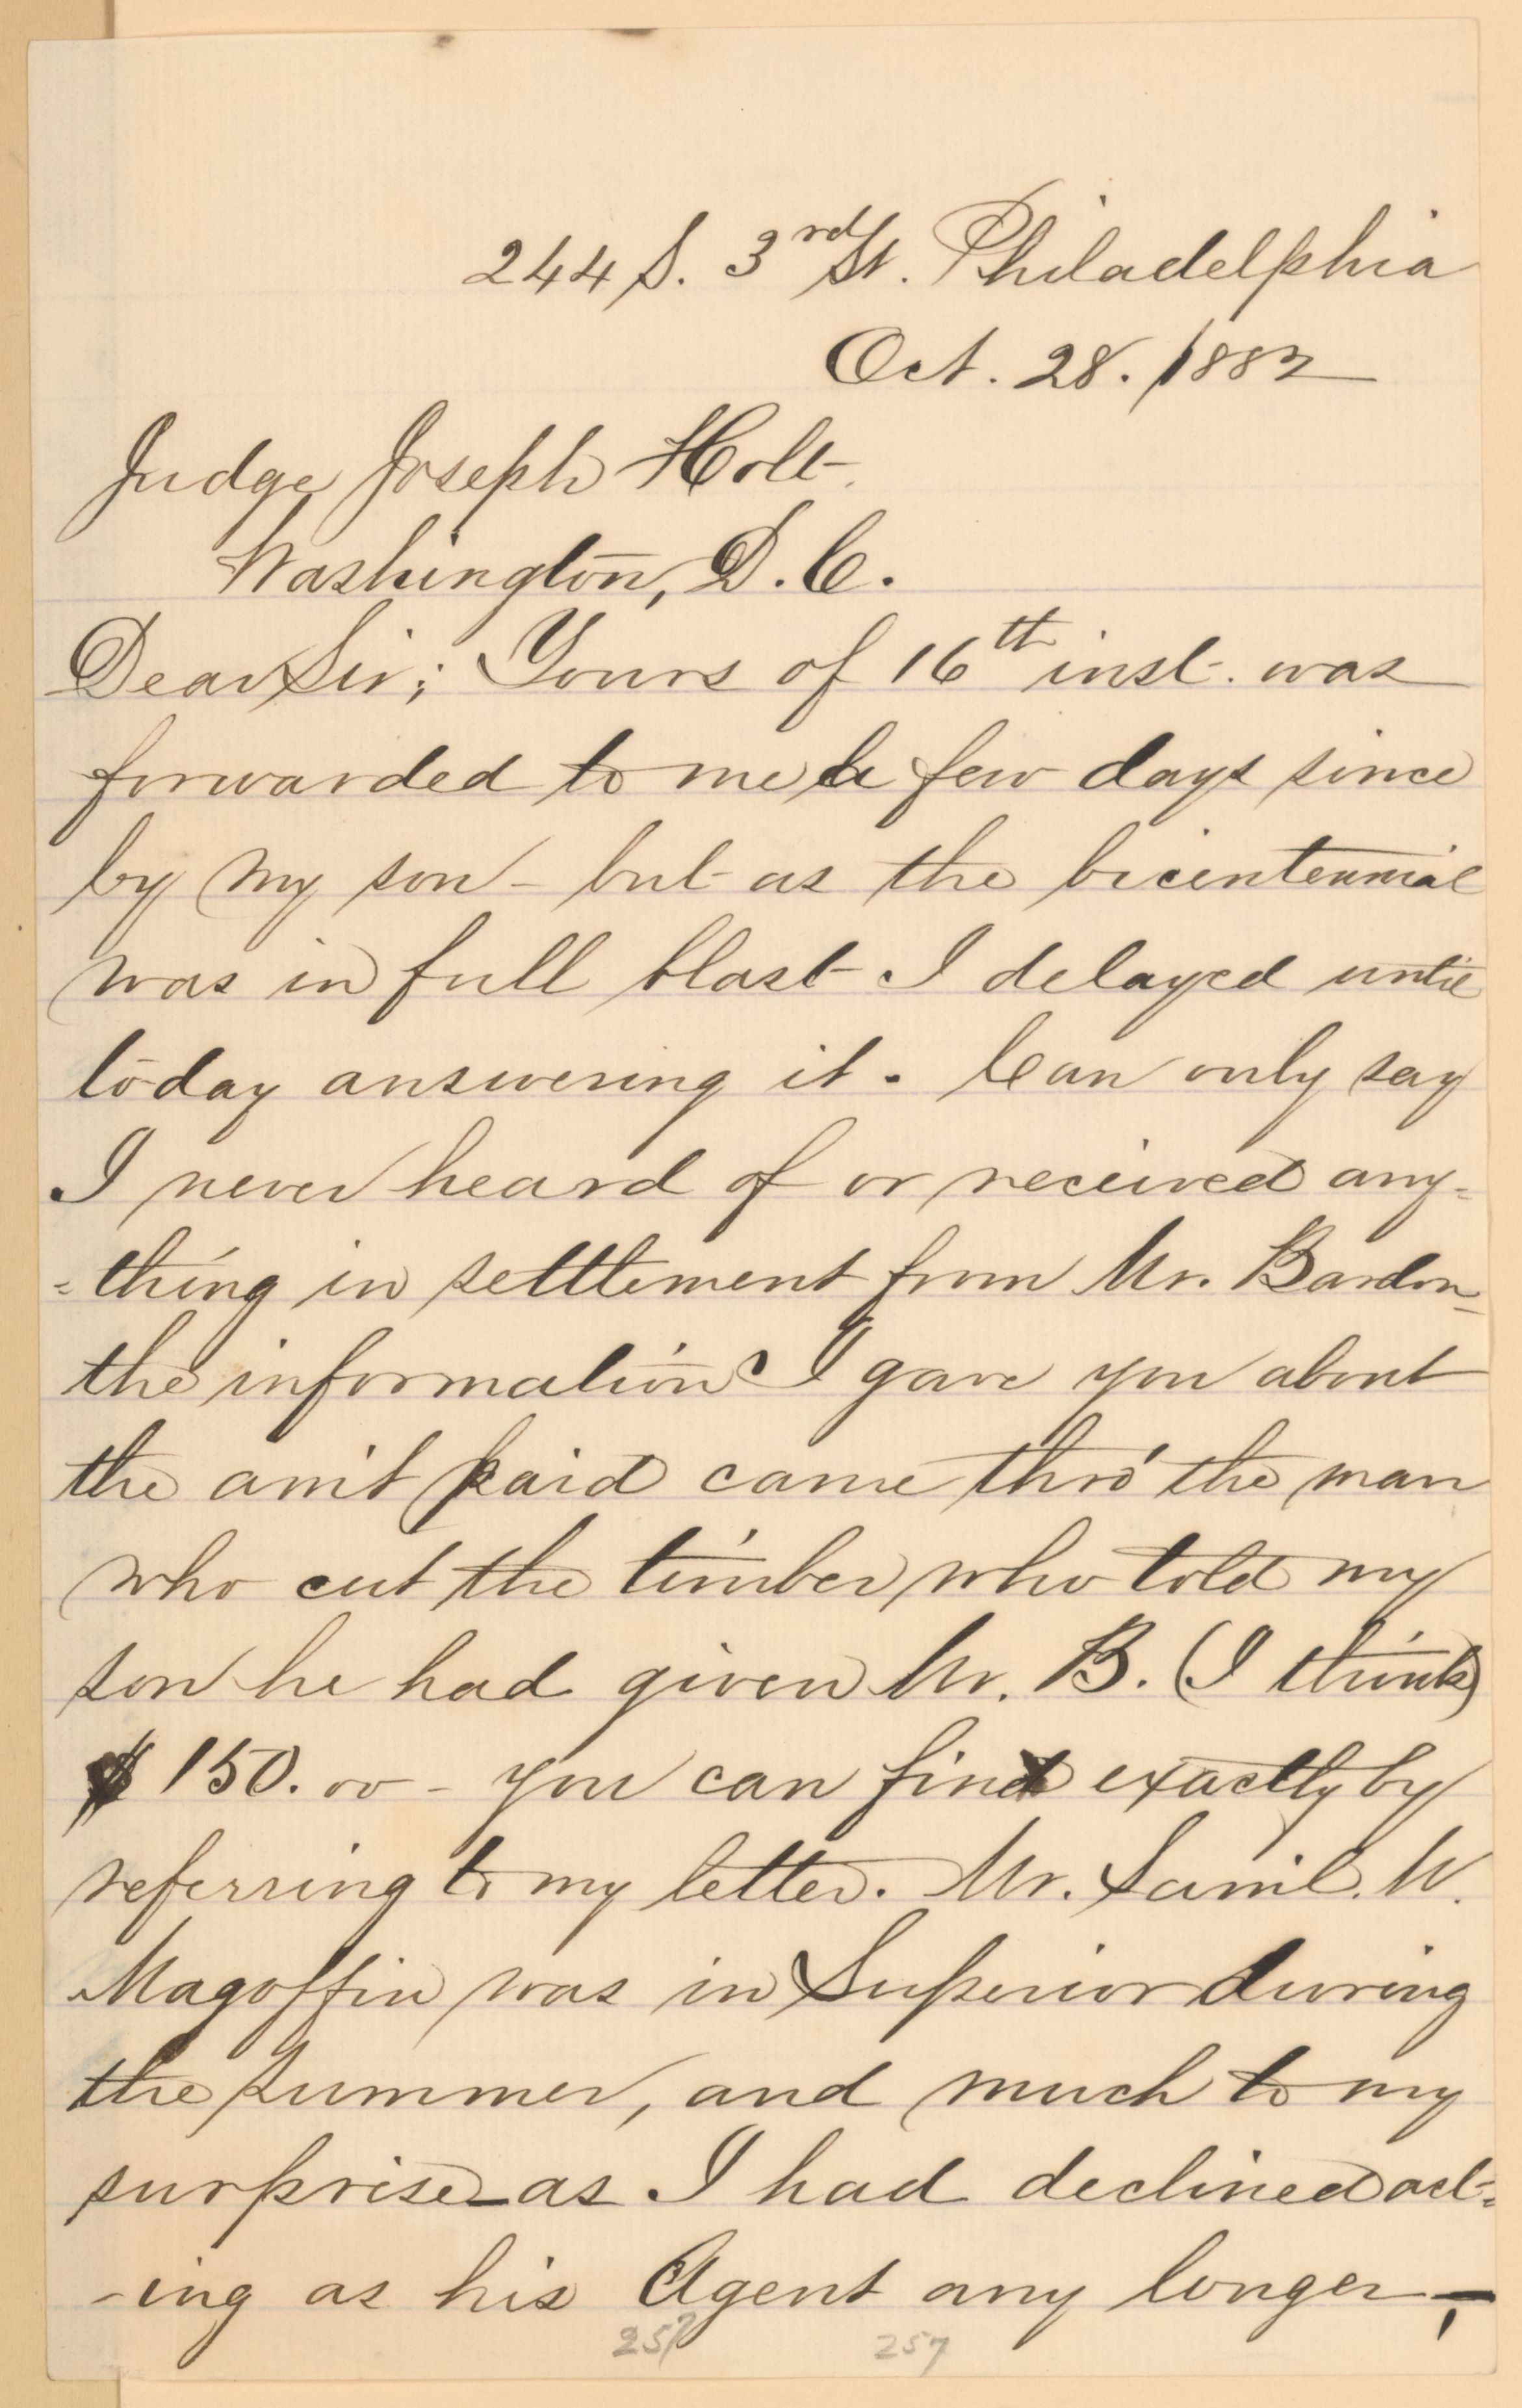 244 S. 3rd St. Philadelphia
Oct. 28. 1882
Judge Joseph Holt.
Washington, D.C.
Dear Sir; Yours of 16th inst. was
forwarded to me a few days since
by my son - but as the bicentennial
was in full blast - I delayed until
to-day answering it. Can only say
I never heard of or received any-
-thing in settlement from Mr. Bardon -
the information I gave you about
the am't paid came thro' the man
who cut the timber who told my
son he had given Mr. B. (I think)
$150.00 - you can find exactly by
referring to my letter. Mr. Saml. W.
Magoffin was in Superior during
the summer, and much to my
surprise - as I had declined act-
-ing as his Agent any longer -,
257 257